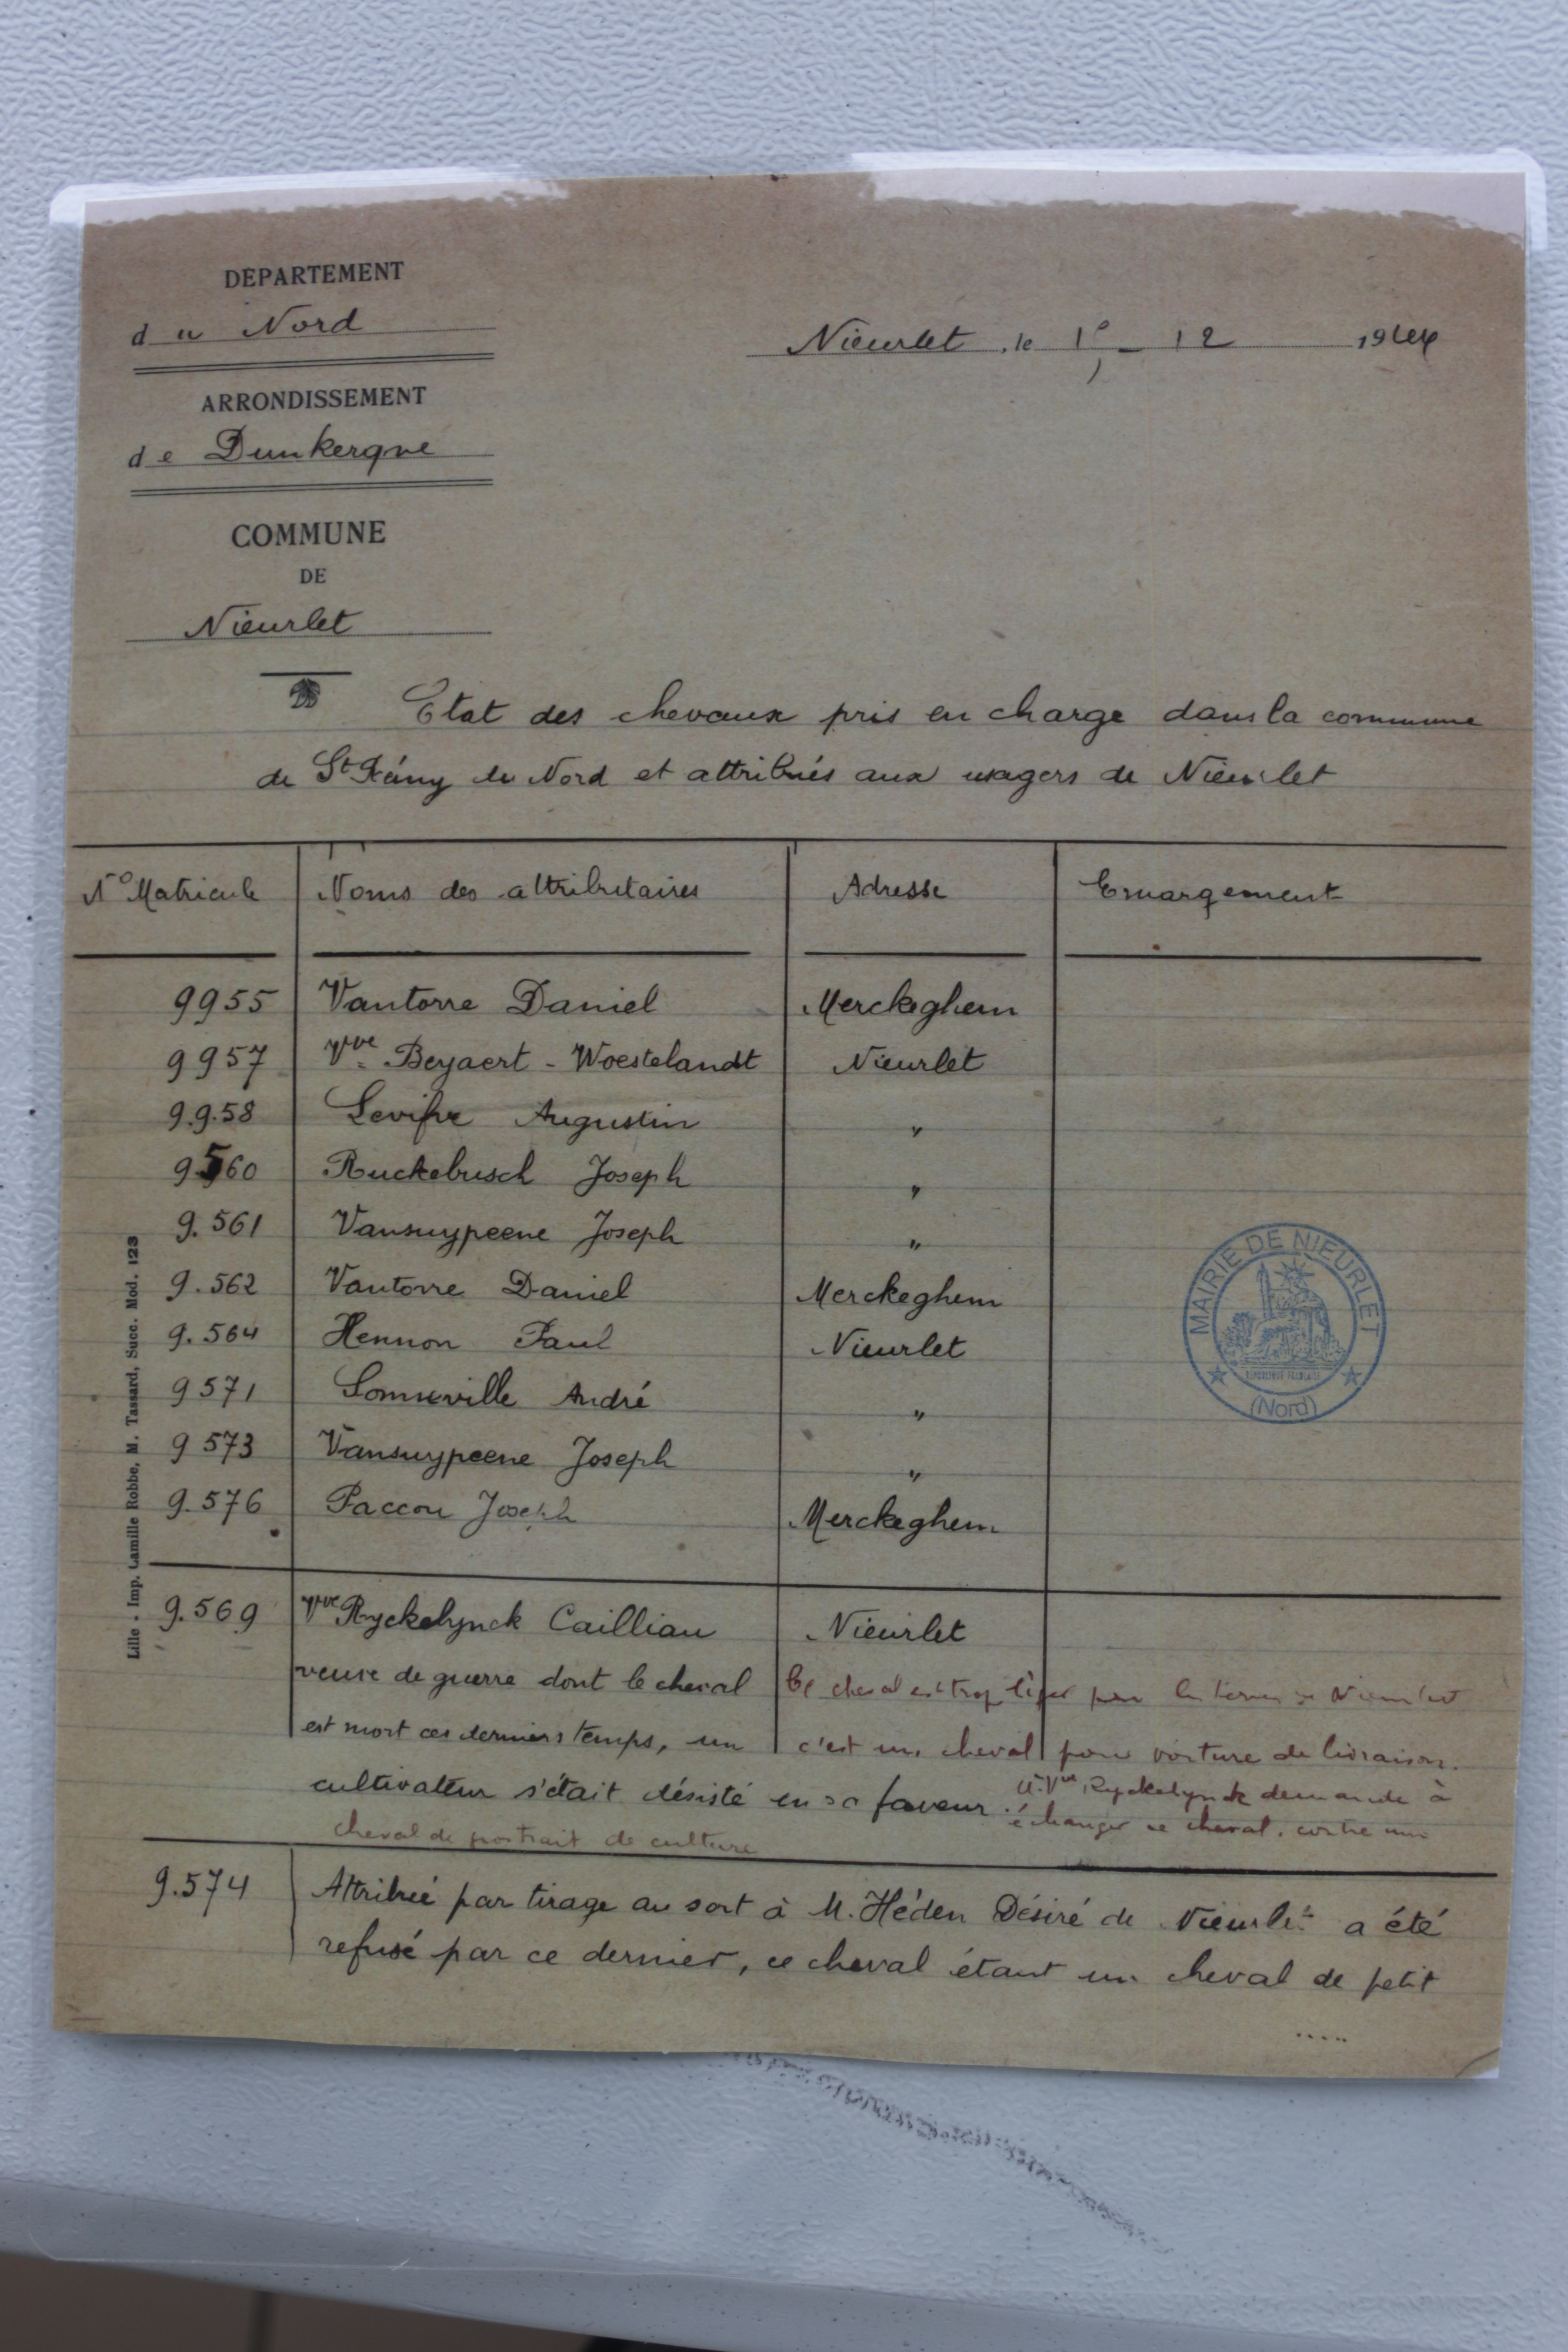 DEPARTEMENT
du Nord
Nieurlet, le 1e - 12 1944
ARRONDISSEMENT
de Dunkerque
COMMUNE
DE
Nieurlet
Etat des chevaux pris en charge dans la commune
de St Rémy du Nord et attribués aux usagers de Nieurlet
N° Matricule Noms des attributaires Adresse Emargement
9955 Vantorre Daniel Merckeghem
9957 Vve Beyaert - Woestelandt Nieurlet
9.9.58 Levifve Augustin "
9560 Ruckebusch Joseph "
9.561 Vansuypeene Joseph "
9.562 Vantorre Daniel Merckeghem
9.564 Hennon Paul Nieurlet
9571 Somerville André "
9573 Vansuypeene Joseph "
9.576 Paccou Joseph Merckeghem
MAIRIE DE NIEURLET
REPUBLIQUE FRANÇAISE
(Nord)
Lille - Imp. Camille Robbe, M. Tassard, Succ. Mod. 123
9.569 Vve Ryckelynck Cailliau Nieurlet
veuve de guerre dont le cheval
Ce cheval est trop léger pour les terres de Nieurlet
est mort ces derniers temps, un
c'est un cheval pour voiture de livraison.
cultivateur s'était désisté en sa faveur.
Vve Ryckelynck demande à
échanger ce cheval contre un
cheval de de culture
9.574 Attribué par tirage au sort à M. Héden Désiré de Nieurlet a été
refusé par ce dernier, ce cheval étant un cheval de petit
.....